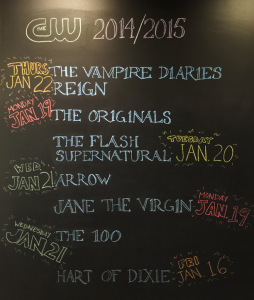 THE CW 2014/2015
THURS
JAN 22
THE VAMPIRE DIARIES
REIGN
MONDAY
JAN 19
THE ORIGINALS
THE FLASH
SUPERNATURAL
TUESDAY
JAN. 20
WED
JAN 21
ARROW
JANE THE VIRGIN
MONDAY
JAN 19
WEDNESDAY
JAN 21
THE 100
HART OF DIXIE
FRI
JAN 16